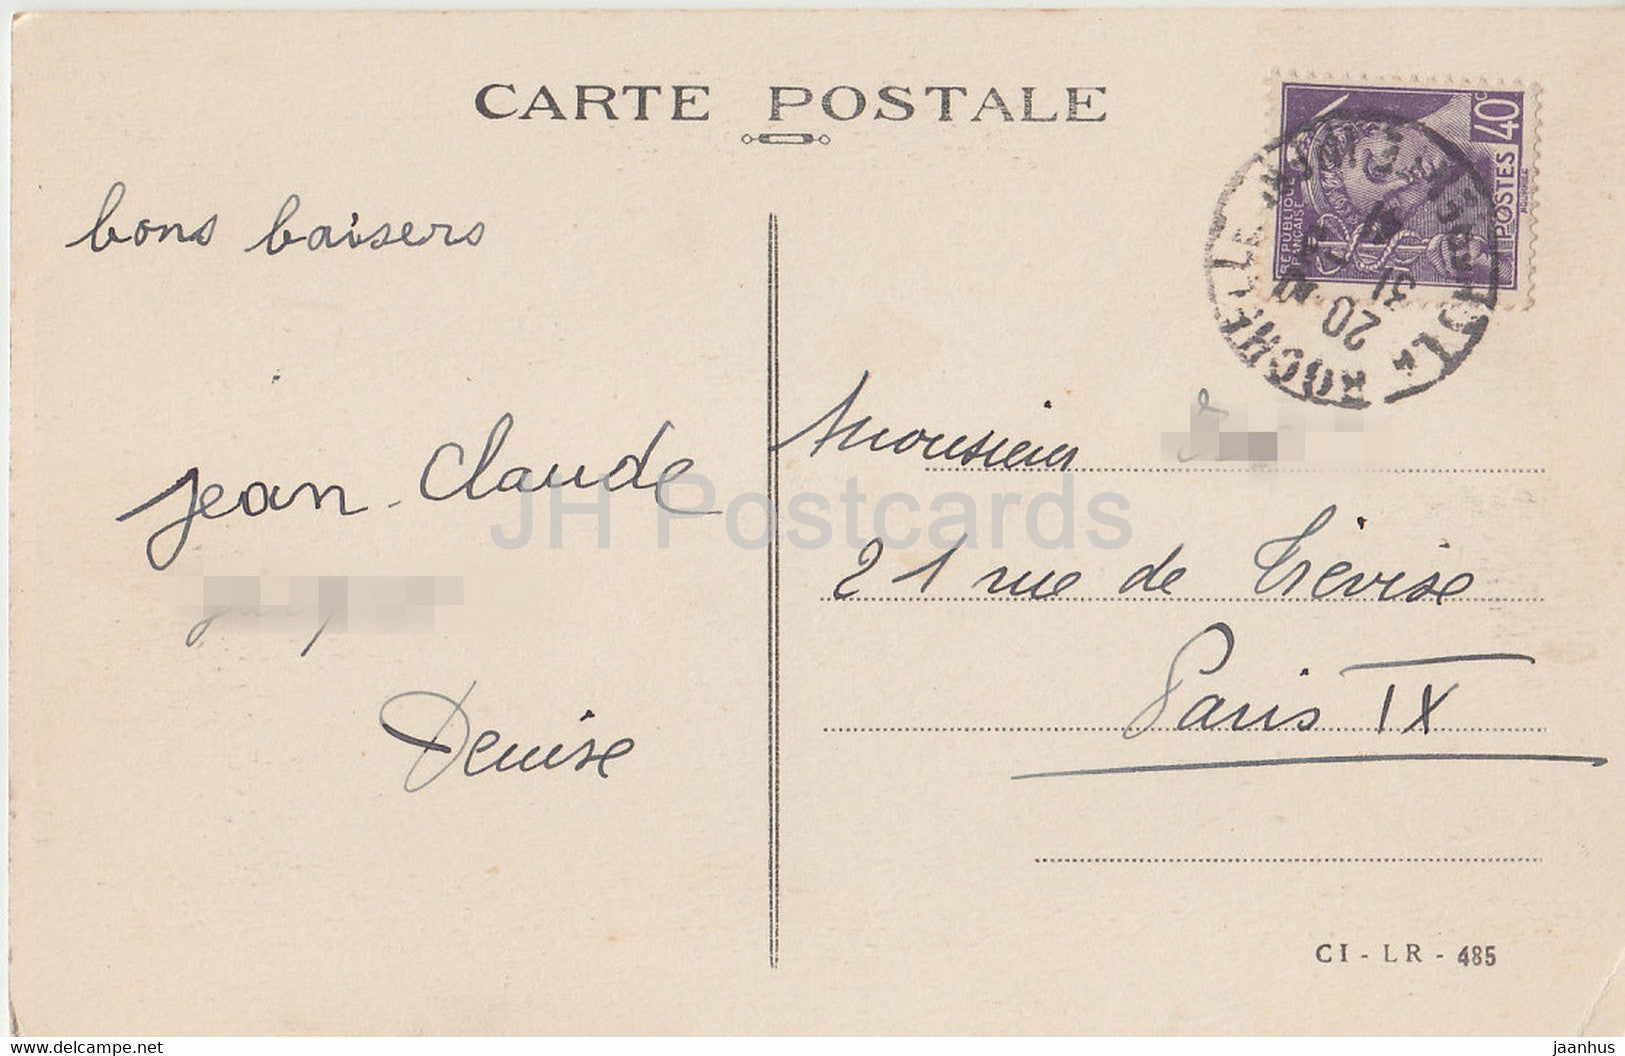 CARTE POSTALE
bons baisers
Jean-Claude
Denise
Monsieur
21 rue de Trévise
Paris IX
REPUBLIQUE FRANÇAISE
POSTES 40c
LA ROCHELLE
20
31
41
CI - LR - 485
JH Postcards
hip-postcard.com
jaanhus